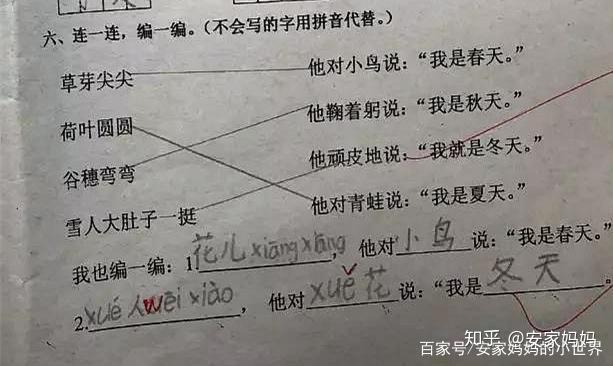 六、连一连，编一编。（不会写的字用拼音代替。）
草芽尖尖 他对小鸟说：“我是春天。”
荷叶圆圆 他鞠着躬说：“我是秋天。”
谷穗弯弯 他顽皮地说：“我就是冬天。”
雪人大肚子一挺 他对青蛙说：“我是夏天。”
我也编一编：1花儿xiāng xiāng，他对小鸟说：“我是春天。”
2.xué人wēi xiào，他对xuě花说：“我是冬天。
知乎 @安家妈妈
百家号/安家妈妈的小世界